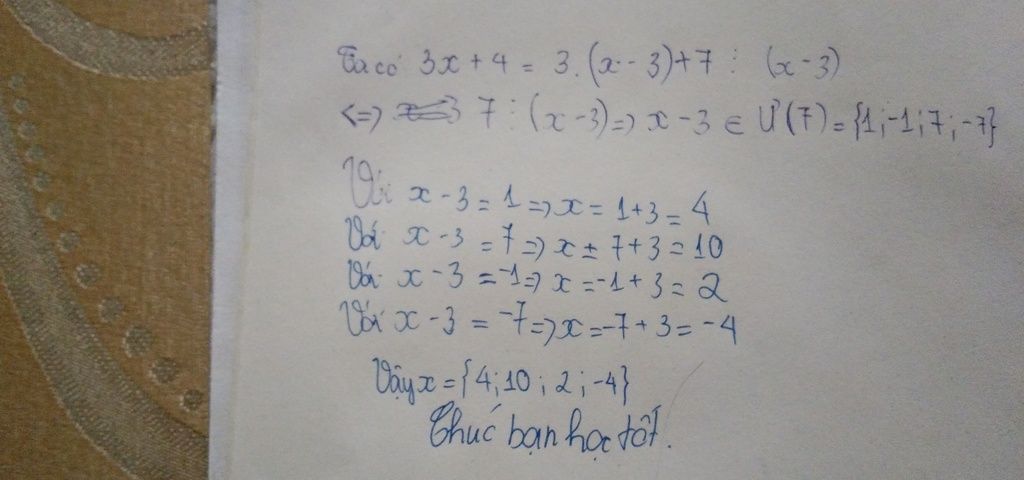 Ta có 3x + 4 = 3.(x - 3) + 7 ⋮ (x - 3)
<=> 7 ⋮ (x - 3) => x - 3 ∈ Ư(7) = {1; -1; 7; -7}
Với x - 3 = 1 => x = 1 + 3 = 4
Với x - 3 = 7 => x = 7 + 3 = 10
Với x - 3 = -1 => x = -1 + 3 = 2
Với x - 3 = -7 => x = -7 + 3 = -4
Vậy x = {4; 10; 2; -4}
Chúc bạn học tốt.